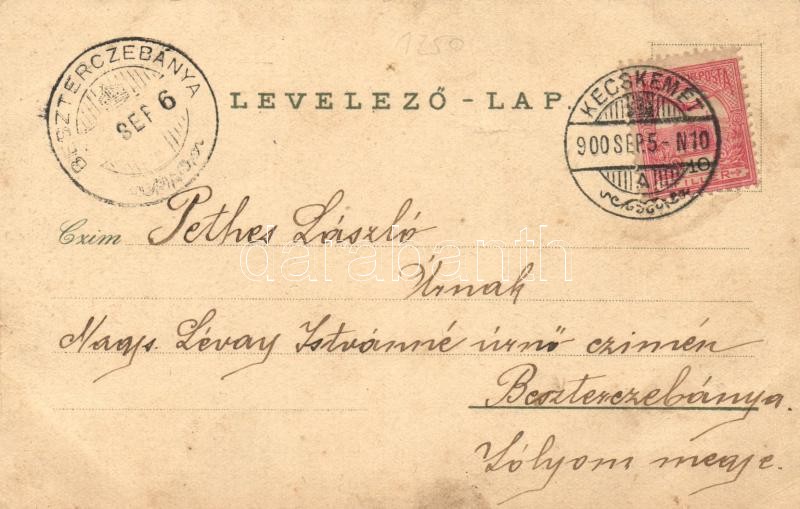 1250
BESZTERCZEBÁNYA
SEP 6
LEVELEZŐ-LAP.
KECSKEMÉT
900 SEP. 5 - N10
A
10
Czim Pethes László
Úrnak
Nagys. Lévay Istvánné úrnő czimén
Beszterczebánya.
Zólyom megje.
darabanth